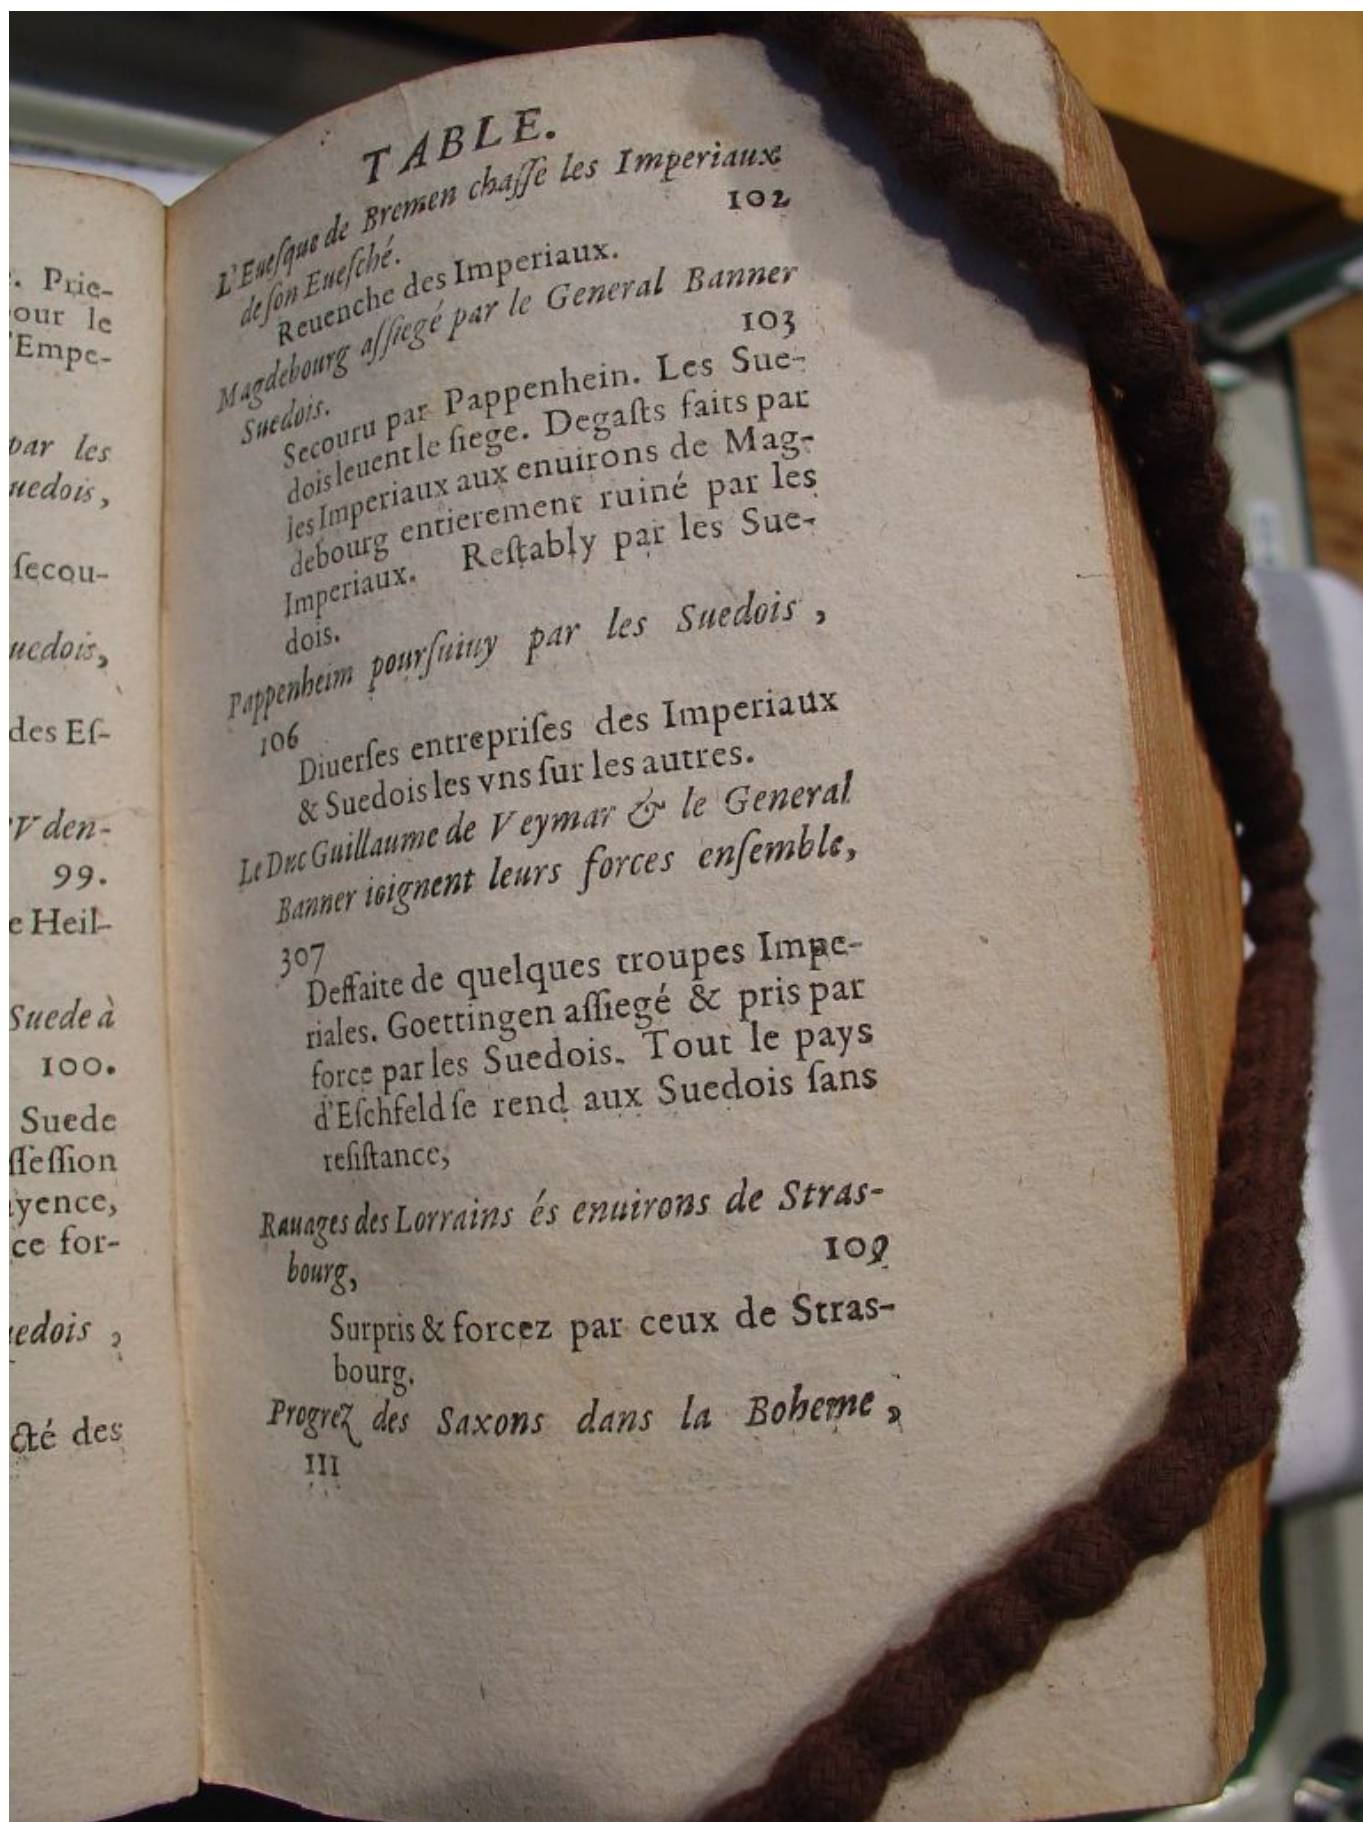 . Prie-
our le
'Empe-
par les
uedois,
ſecou-
uedois,
des Eſ-
Vden-
99.
e Heil-
Suede à
100.
Suede
ſſeſſion
yence,
ce for-
uedois ,
cté des
TABLE.
L'Eueſque de Bremen chaſſe les Imperiaux
de ſon Eueſché. 102
Reuenche des Imperiaux.
Magdebourg aſſiegé par le General Banner
Suedois. 103
Secouru par Pappenhein. Les Sue-
dois leuent le ſiege. Degaſts faits par
les Imperiaux aux enuirons de Mag-
debourg entierement ruiné par les
Imperiaux. Reſtably par les Sue-
dois.
Pappenheim pourſuiuy par les Suedois ,
106
Diuerſes entrepriſes des Imperiaux
& Suedois les vns ſur les autres.
Le Duc Guillaume de Veymar & le General
Banner ioignent leurs forces enſemble,
307
Deffaite de quelques troupes Impe-
riales. Goettingen aſſiegé & pris par
force par les Suedois. Tout le pays
d'Eſchfeld ſe rend aux Suedois ſans
reſiſtance,
Rauages des Lorrains és enuirons de Stras-
bourg, 109
Surpris & forcez par ceux de Stras-
bourg.
Progrez des Saxons dans la Boheme ,
III